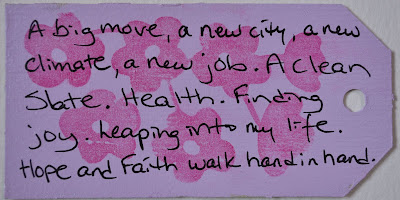 A big move, a new city, a new
climate, a new job. A clean
Slate. Health. Finding
joy. Leaping into my life.
Hope and Faith walk hand in hand.